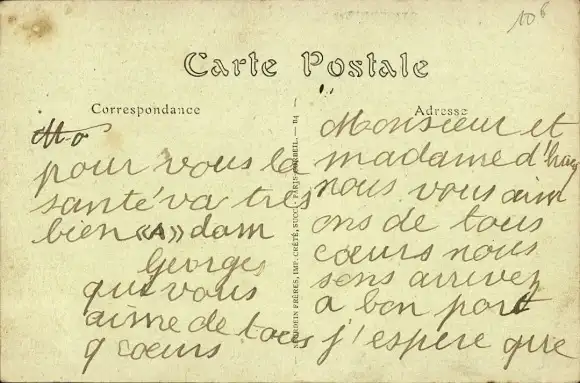 10
Carte Postale
Correspondance
Adresse
Monsieur et
madame d'
nous vous aim
ons de tous
cœurs nous
sons arrivez
a bon port
j'espere que
pour vous la
santé va tres
bien «A» dam
Georges
qui vous
aime de tous
q coeurs
NEURDEIN FRÈRES, IMP. CRÉTÉ, SUCC., PARIS-CORBEIL. — B4 —